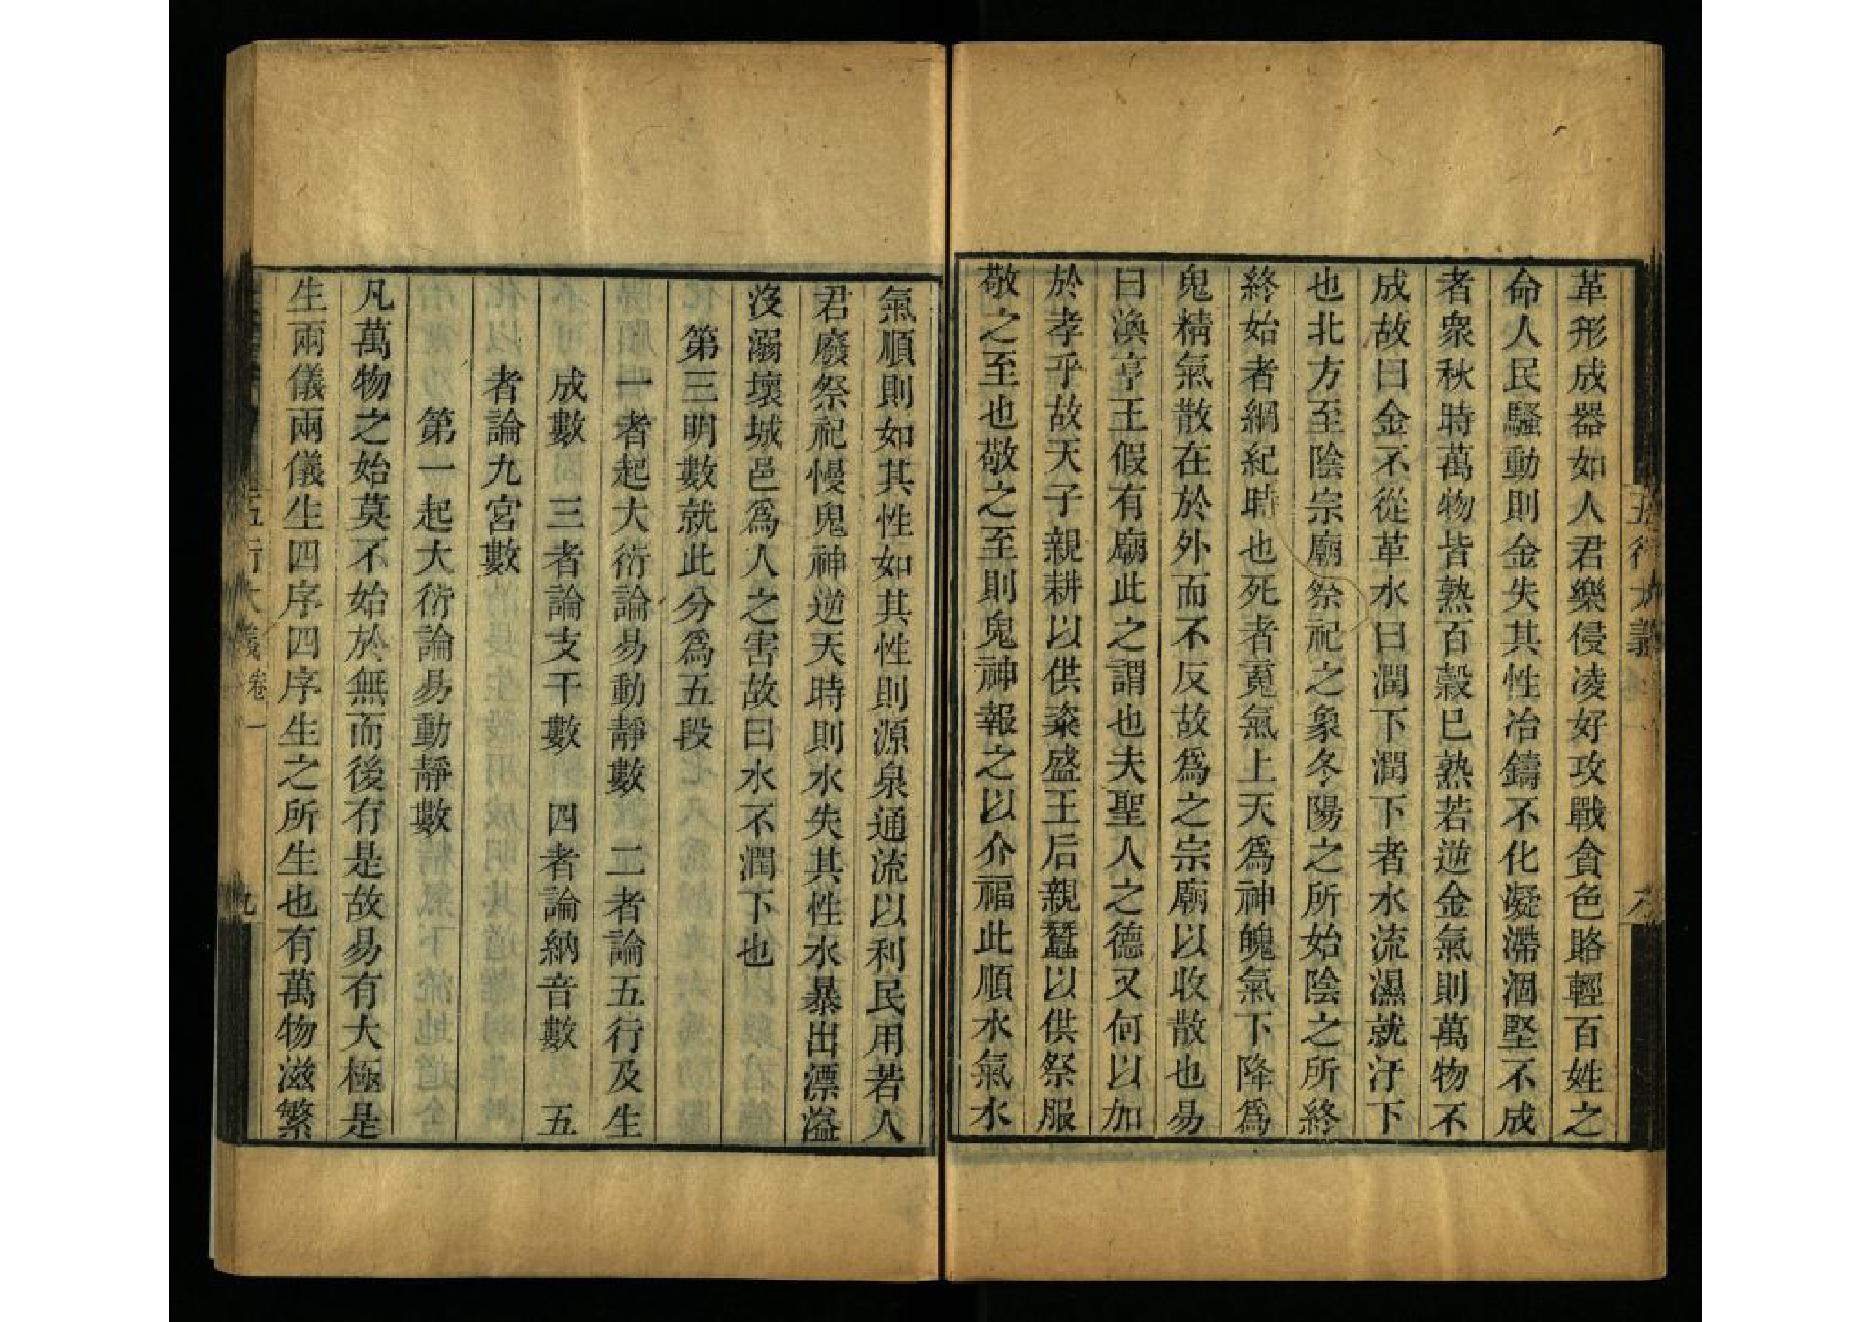 革形成器如人君樂侵凌好攻戰貪色賂輕百姓之
命人民騷動則金失其性冶鑄不化凝滯涸堅不成
者衆秋時萬物皆熟百穀已熟若逆金氣則萬物不
成故曰金不從革水曰潤下潤下者水流濕就汙下
也北方至陰宗廟祭祀之象冬陽之所始陰之所終
終始者綱紀時也死者魂氣上天爲神魄氣下降爲
鬼精氣散在於外而不反故爲之宗廟以收散也易
曰渙亨王假有廟此之謂也夫聖人之德又何以加
於孝乎故天子親耕以供粢盛王后親蠶以供祭服
敬之至也敬之至則鬼神報之以介福此順水氣水
氣順則如其性如其性則源泉通流以利民用若人
君廢祭祀慢鬼神逆天時則水失其性水暴出漂溢
沒溺壞城邑爲人之害故曰水不潤下也
第三明數就此分爲五段
一者起大衍論易動靜數 二者論五行及生
成數 三者論支干數 四者論納音數 五
者論九宮數
第一起大衍論易動靜數
凡萬物之始莫不始於無而後有是故易有大極是
生兩儀兩儀生四序四序生之所生也有萬物滋繁
五行大義 卷一
九